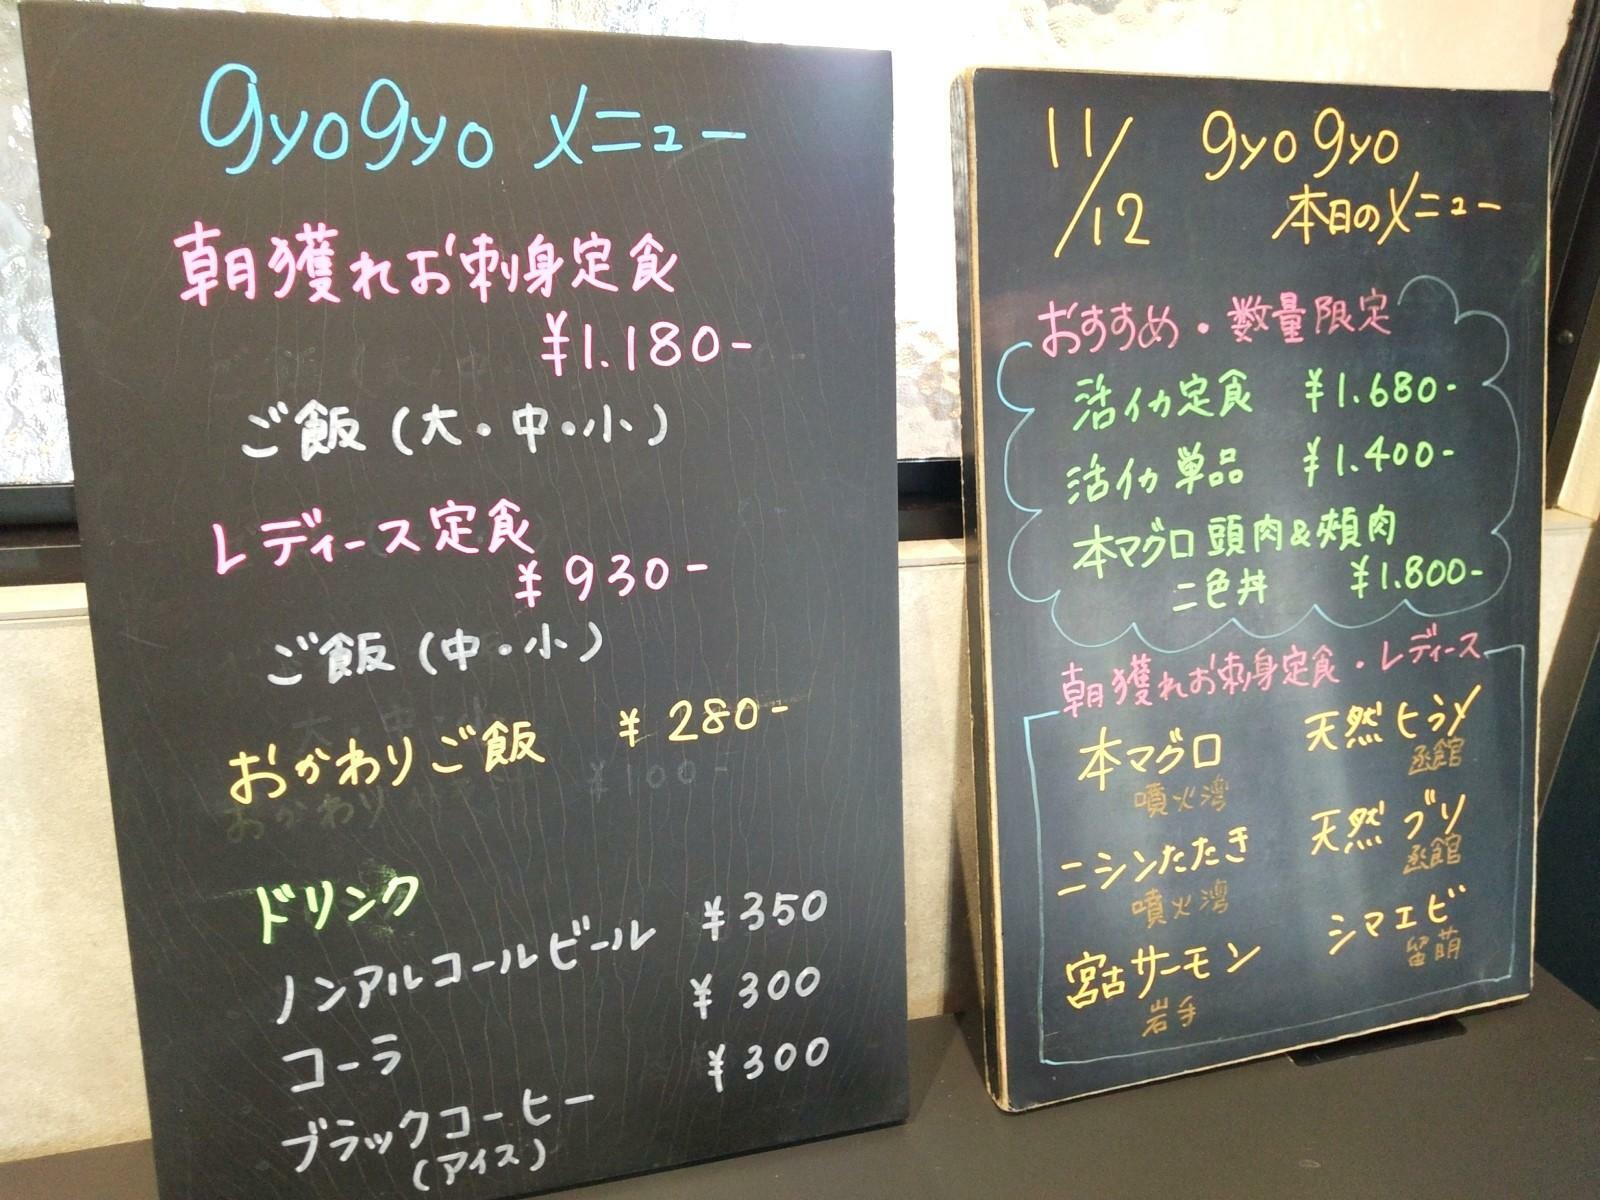 gyogyo メニュー
朝獲れお刺身定食
¥1.180-
ご飯(大・中・小)
レディース定食
¥930-
ご飯(中・小)
おかわりご飯 ¥280-
おかわり ¥100-
ドリンク
ノンアルコールビール ¥350
コーラ ¥300
ブラックコーヒー ¥300
(アイス)
11/12 gyogyo
本日のメニュー
おすすめ・数量限定
活イカ定食 ¥1.680-
活イカ単品 ¥1.400-
本マグロ頭肉&頰肉
二色丼 ¥1.800-
朝獲れお刺身定食・レディース
本マグロ
噴火湾
ニシンたたき
噴火湾
宮古サーモン
岩手
天然ヒラメ
函館
天然ブリ
函館
シマエビ
留萌